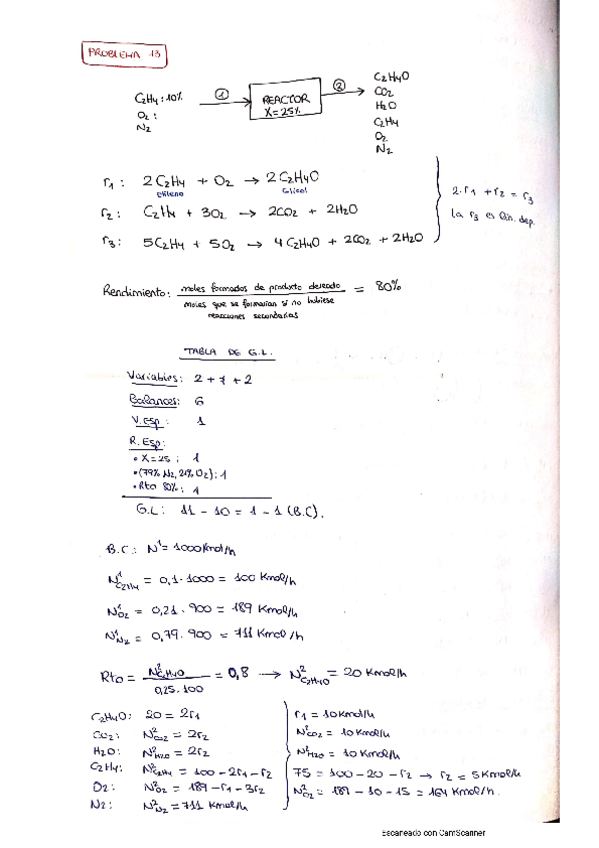 PROBLEMA 13
C2H4: 10%
O2:
N2
①
REACTOR
X=25%
②
C2H4O
CO2
H2O
C2H4
O2
N2
r1: 2C2H4 + O2 → 2C2H4O
etileno
Glicol
r2: C2H4 + 3O2 → 2CO2 + 2H2O
r3: 5C2H4 + 5O2 → 4C2H4O + 2CO2 + 2H2O
2·r1 + r2 = r3
La r3 es lin. dep.
Rendimiento: moles formados de producto deseado = 80%
moles que se formarían si no hubiese
reacciones secundarias
TABLA DE G.L.
Variables: 2 + 7 + 2
Balances: 6
V.esp: 1
R.Esp:
• X=25: 1
• (79% N2, 21% O2): 1
• Rto 80%: 1
G.L: 11 - 10 = 1 - 1 (B.C).
B.C.: N1 = 1000 Kmol/h
N1C2H4 = 0,1·1000 = 100 Kmol/h
N1O2 = 0,21·900 = 189 Kmol/h
N1N2 = 0,79·900 = 711 Kmol/h
Rto = N2C2H4O / 0,25·100 = 0,8 → N2C2H4O = 20 Kmol/h
C2H4O: 20 = 2r1
CO2: N2CO2 = 2r2
H2O: N2H2O = 2r2
C2H4: N2C2H4 = 100 - 2r1 - r2
O2: N2O2 = 189 - r1 - 3r2
N2: N2N2 = 711 Kmol/h
r1 = 10 Kmol/h
N2CO2 = 10 Kmol/h
N2H2O = 10 Kmol/h
75 = 100 - 20 - r2 → r2 = 5 Kmol/h
N2O2 = 189 - 10 - 15 = 164 Kmol/h.
Escaneado con CamScanner